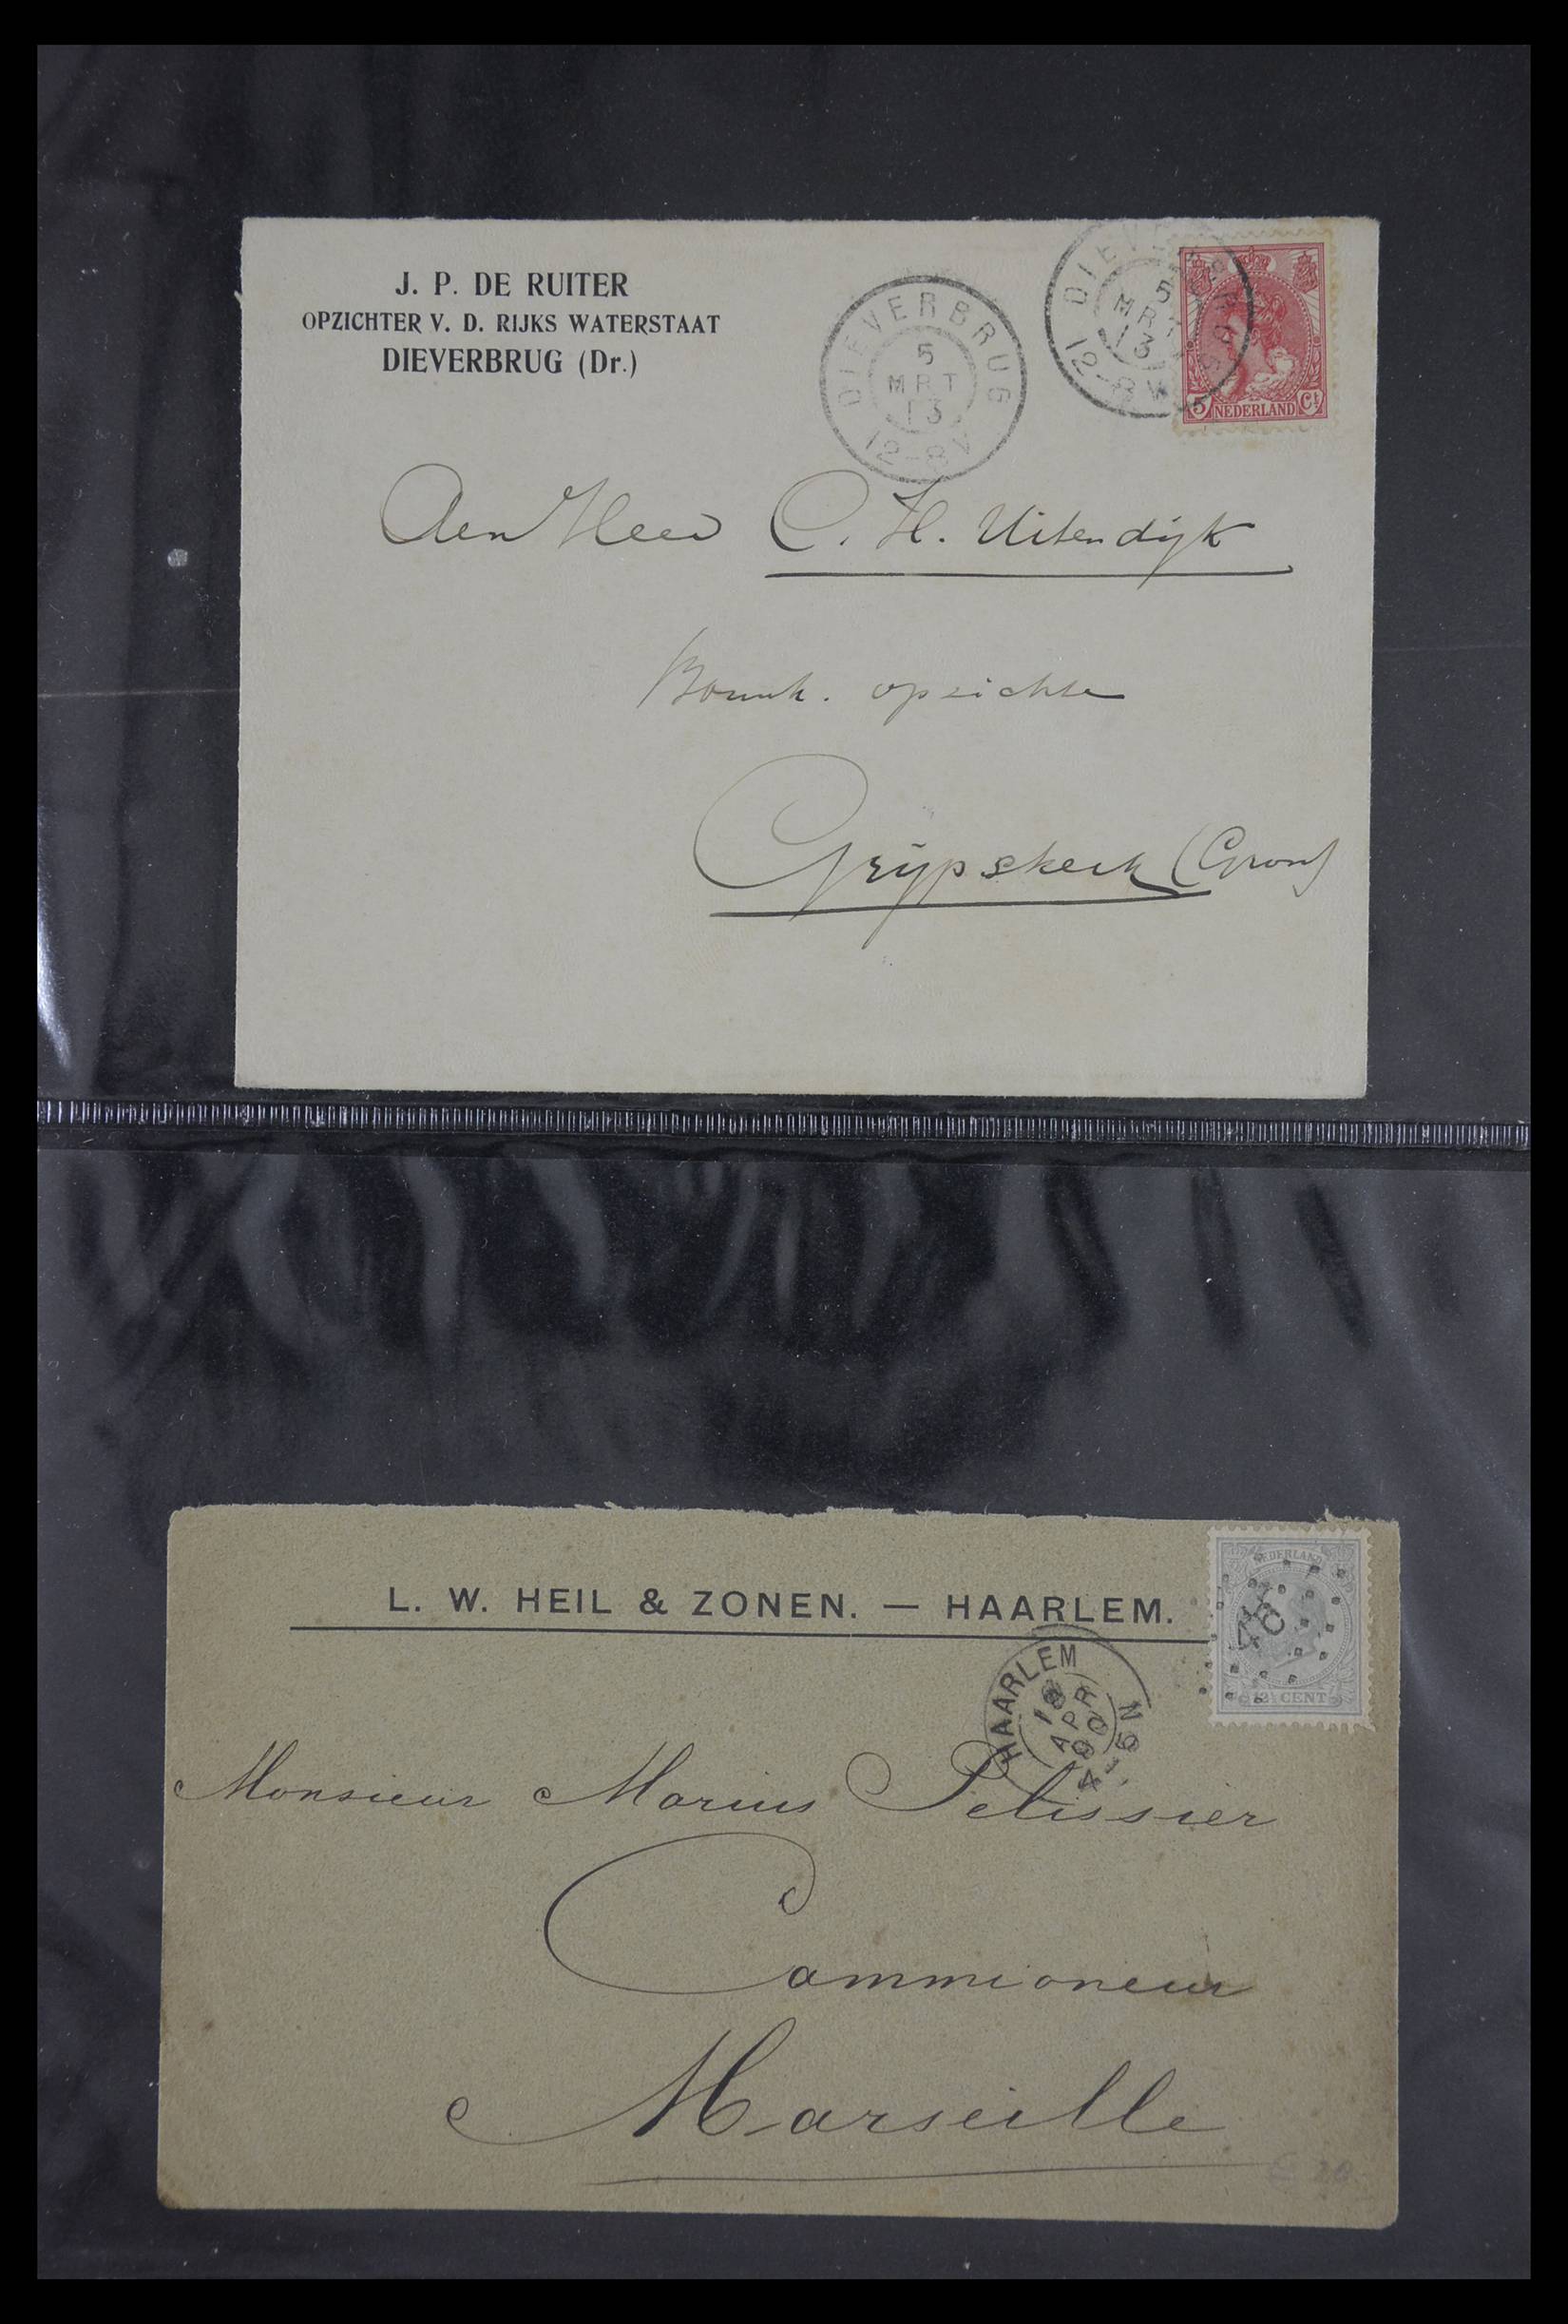 J. P. DE RUITER
OPZICHTER V. D. RIJKS WATERSTAAT
DIEVERBRUG (Dr.)
DIEVERBRUG
5
MRT
13
12-8V
DIEVERBRUG
5
MRT
13
12-8V
5 NEDERLAND Ct
Den Heer C. H. Uitendijk
Bouwk. opzichter
Grijpskerk (Gron)
L. W. HEIL & ZONEN. — HAARLEM.
NEDERLAND
12½ CENT
HAARLEM
18
APR
90
4-5N
Monsieur Marius Pelissier
Cammioneur
Marseille
20